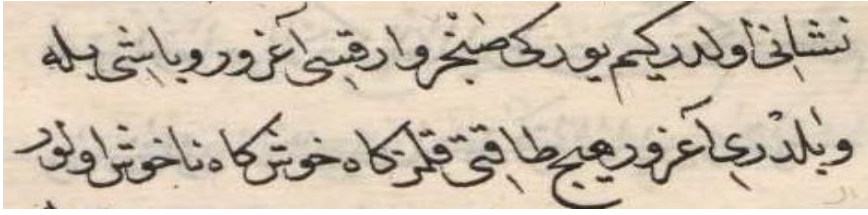 نشانی اولدر کیم یورکی صنجر وارقسی آغرور و باشی بله
و بلدری آغرور هیچ طاقتی قلمز کاه خوش کاه ناخوش اولور